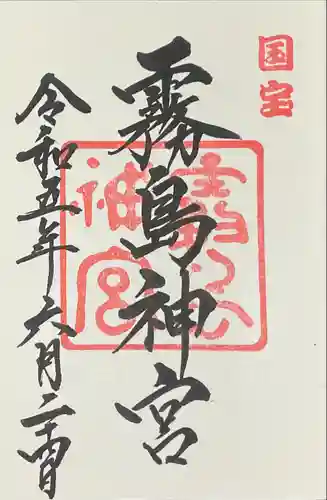 国宝
霧島神宮
霧島神宮
令和五年六月二十四日